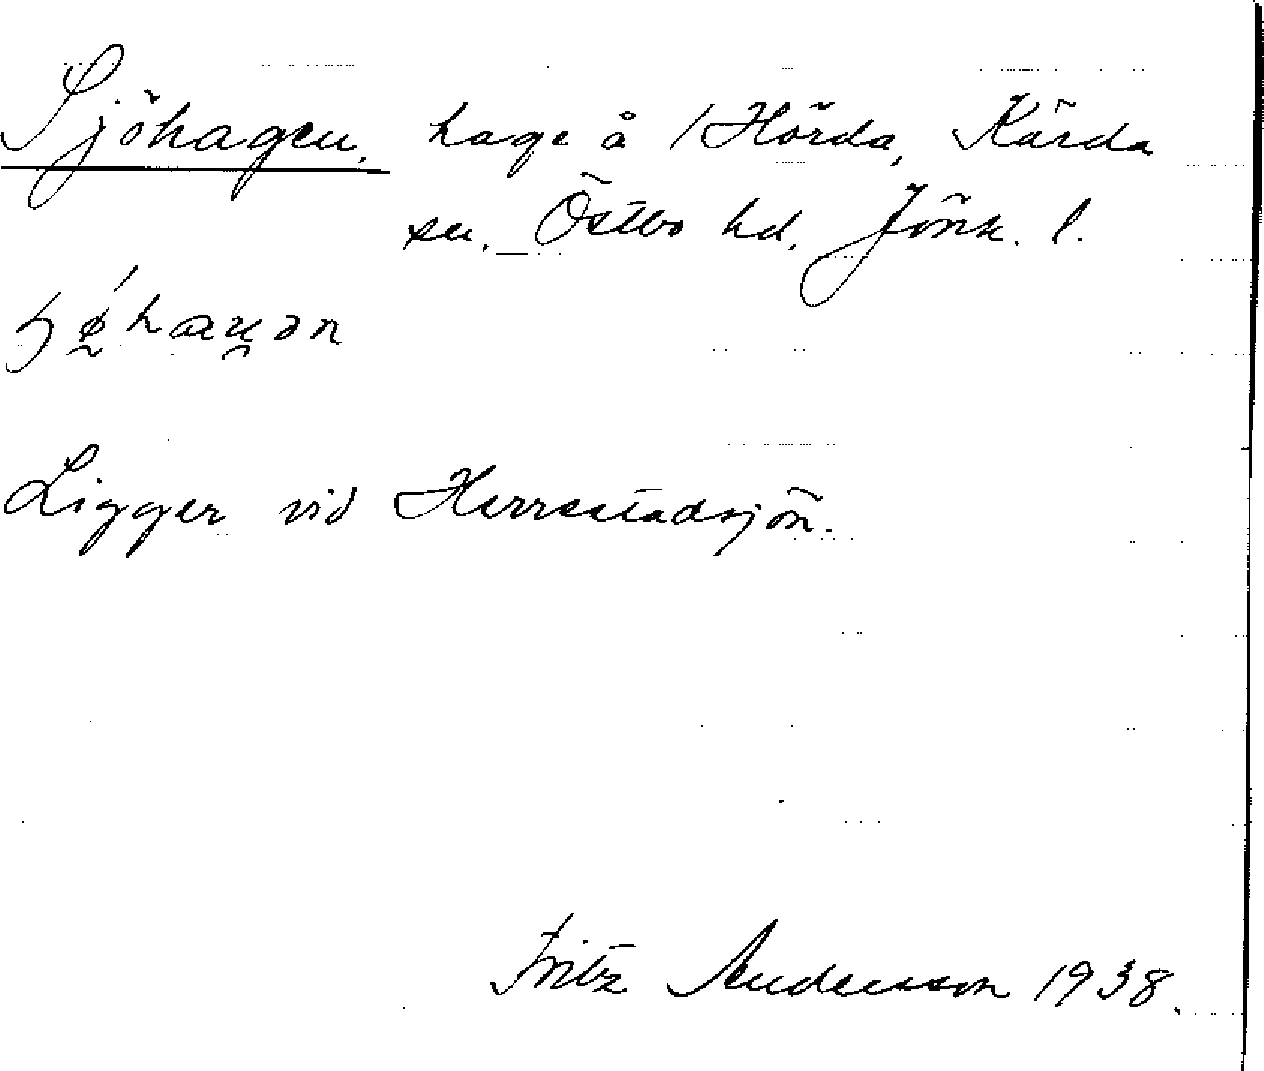 Sjöhagen, hage å /Hörda, Kärda
sn. Östbo hd, Jönk. l.
Ligger vid Herrestadsjön.
Fritz Andersson 1938.